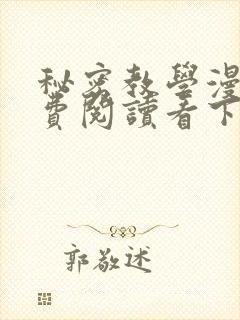 秘密教學漫
費閱讀看下
郭敬述